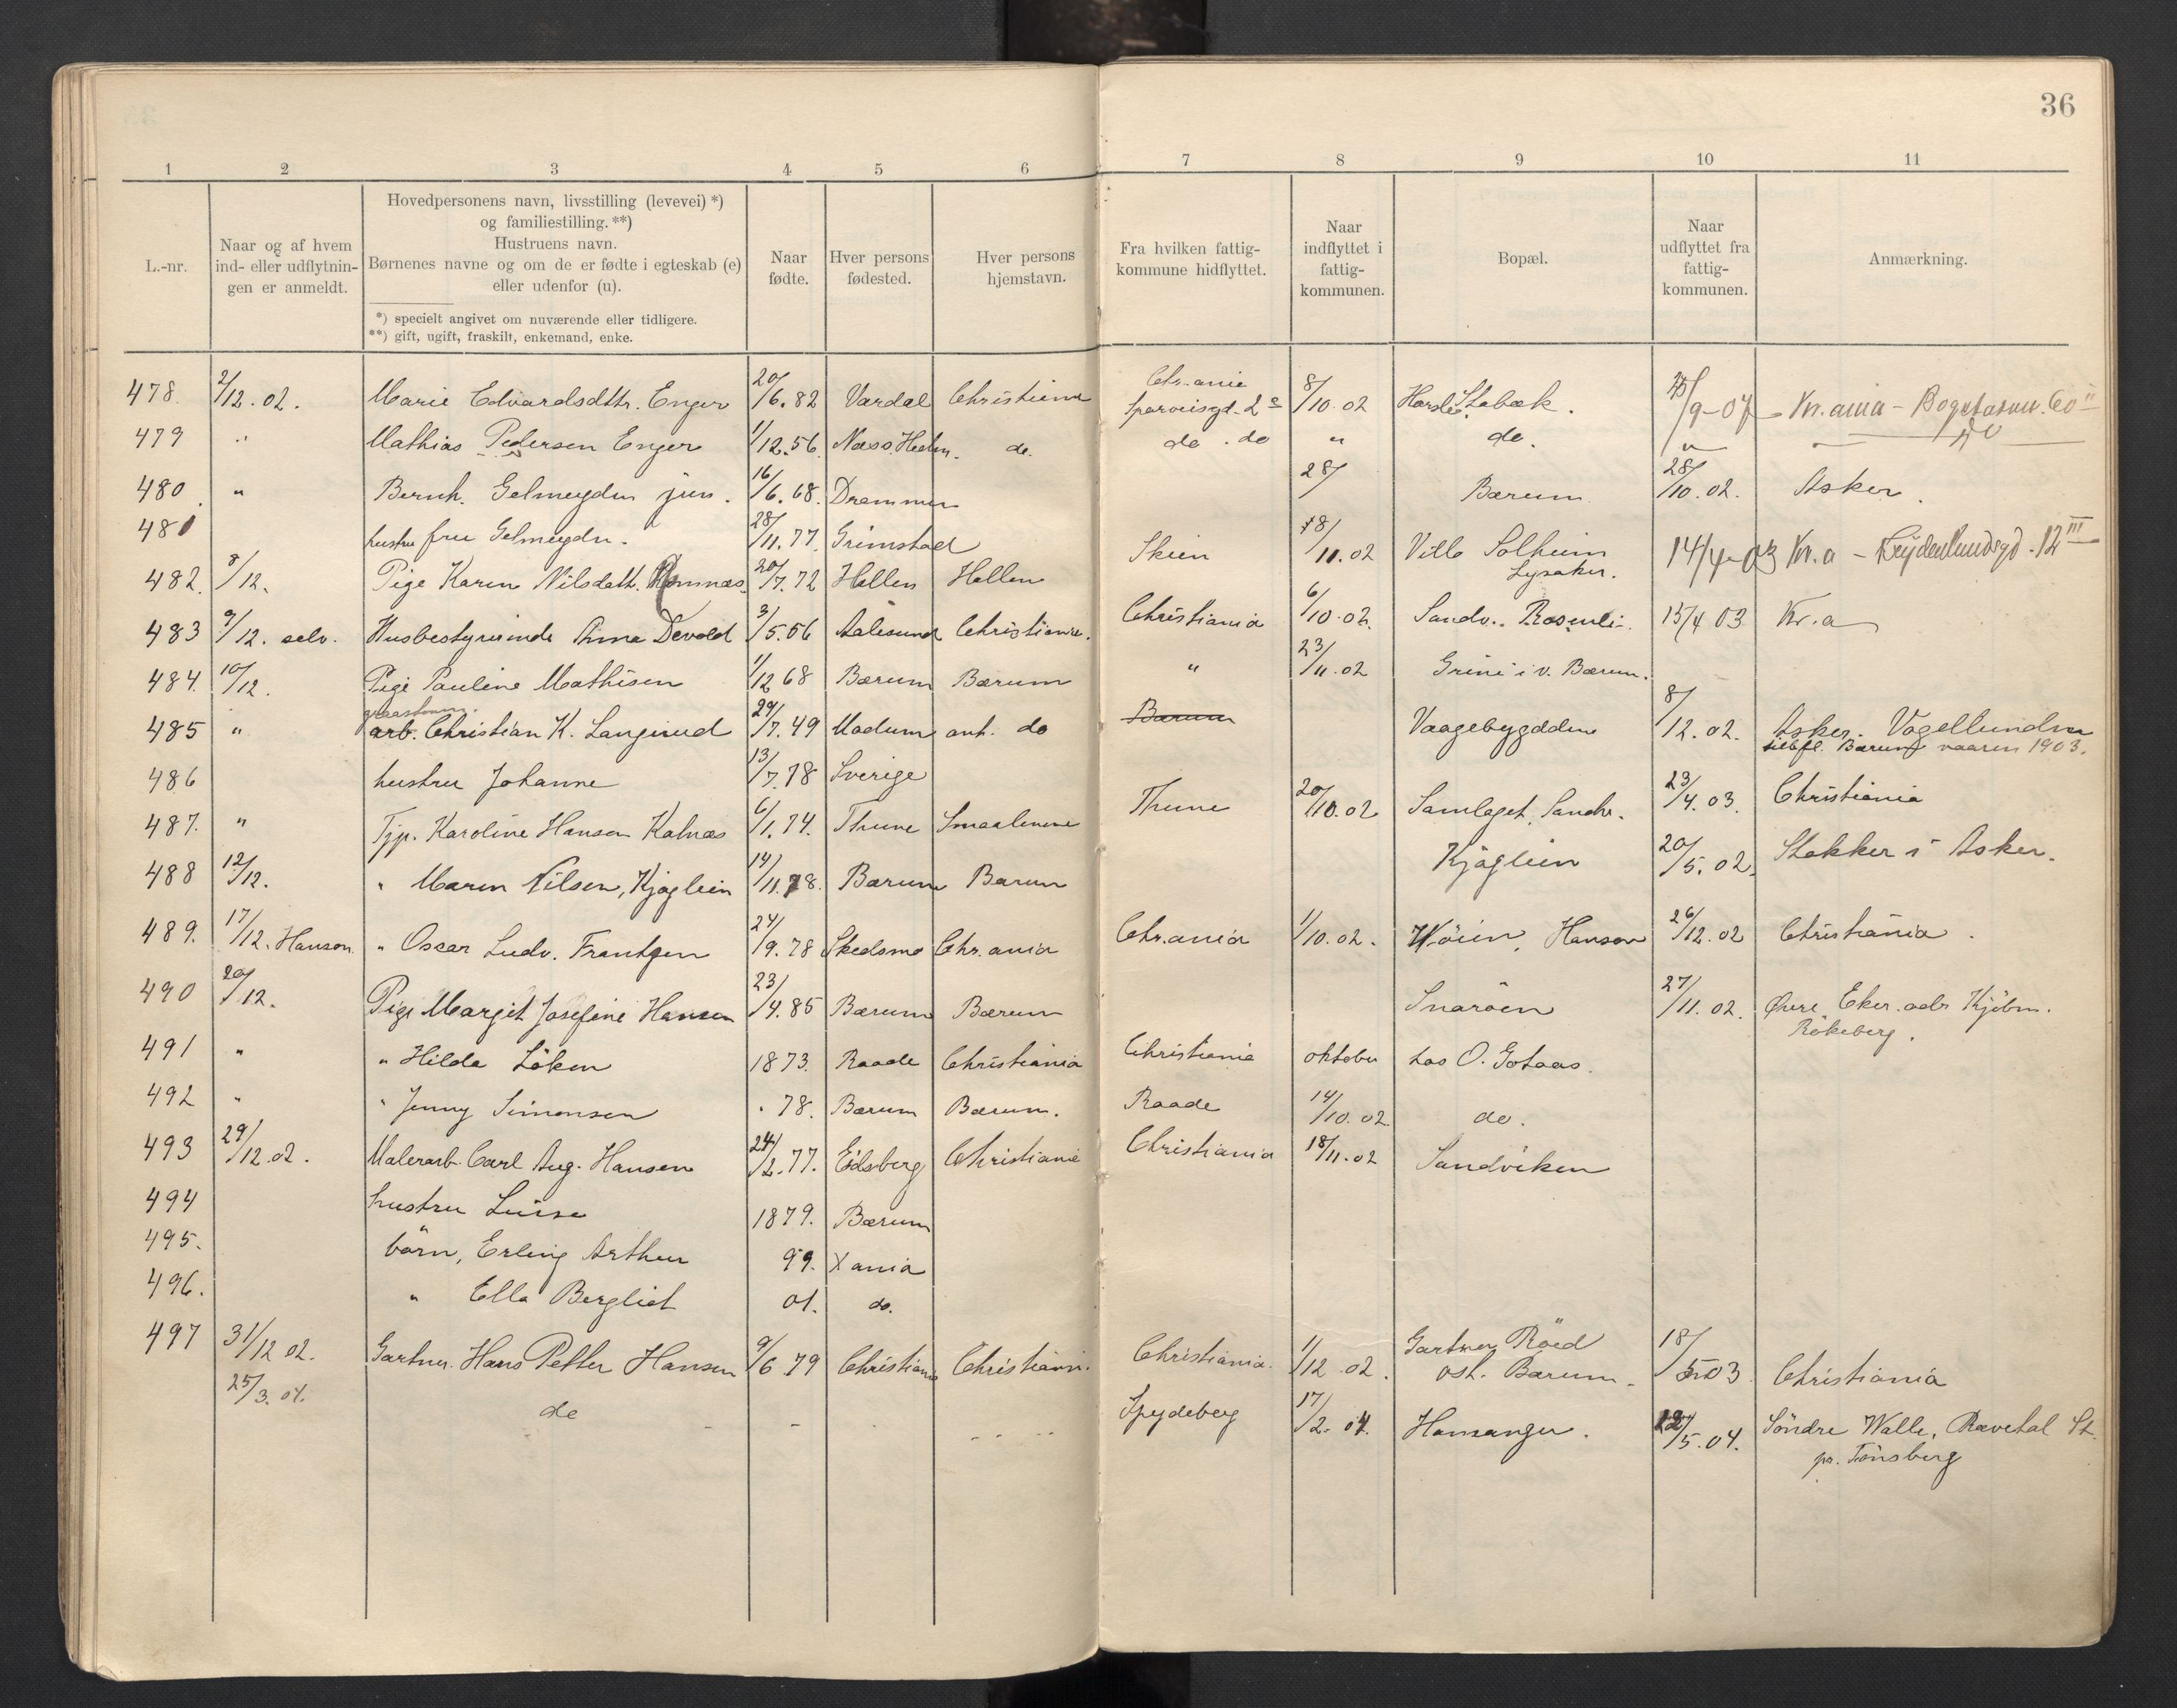 36
1 2 3 4 5 6 7 8 9 10 11
L.-nr.
Naar og af hvem
ind- eller udflytnin-
gen er anmeldt.
Hovedpersonens navn, livsstilling (levevei) *)
og familiestilling. **)
Hustruens navn.
Børnenes navne og om de er fødte i egteskab (e)
eller udenfor (u).
*) specielt angivet om nuværende eller tidligere.
**) gift, ugift, fraskilt, enkemand, enke.
Naar
fødte.
Hver persons
fødested.
Hver persons
hjemstavn.
Fra hvilken fattig-
kommune hidflyttet.
Naar
indflyttet i
fattig-
kommunen.
Bopæl.
Naar
udflyttet fra
fattig-
kommunen.
Anmærkning.
478. 2/12.02. Marie Edvardsdttr. Enger 20/6.82 Vardal Christiania Chr.ania 8/10.02 Stabæk. /9-07 Kr.ania - 60
479 " Mathias Pedersen Enger 1/12.56. Næss. Hedm. do. do . do " do. "
480. " Bernh. Gelmeyden jun. 16/6.68. Drammen 28/ Bærum 28/10.02. Asker.
481 hustru fru Gelmeyden. 28/11.77. Grimstad Skien 18/11.02 Villa Solheim 14/4-03 Kr.a - 12 III
Lysaker.
482. 8/12. Pige Karen Nilsdatt. 20/7.72 Hollen Hollen
483 9/12. selv. Husbestyrerinde Anna Devold 3/5.56 Aalesund Christiania. Christiania 6/10.02. Sandv.. Rosenli. 15/4 03 Kr.a
484. 10/12. Pige Pauline Mathisen 1/12 68 Bærum Bærum " 23/11.02 Grini i v. Bærum.
485 " arb. Christian K. Langerud 29/7.49 Modum ant. do Bærum Vaagebygdden 8/12.02. Asker. Vogellunden
tilbfl. Bærum vaaren 1903.
486 hustru Johanne 13/7.78 Sverige
487. " Tjp. Karoline Hansen Kalnæs 6/1.74. Thune Smaalenene Thune 20/10.02 Samlaget, Sandv. 23/4.03. Christiania
488 12/12. " Maren Nilsen, Kjøglein 14/11.78. Bærum Bærum Kjøglein 20/5.02. Stokker i Asker.
489. 17/12. Hanson " Oscar Ludv. Frantzen 24/9.78 Skedsmo Chr.ania Chr.ania 1/10.02. Wøien, Hanson 26/12.02 Christiania.
490 20/12. Pige Margit Josefine Hansen 23/4.85 Bærum Bærum Snarøen 27/11.02. Øvre Eker. adr Kjøbm.
Røkeberg.
491 " " Hilda Løken 1873. Raade Christiania Christiania oktober hos O. Gotaas.
492 " " Jenny Simonsen " 78. Bærum Bærum. Raade 14/10.02 do.
493 29/12.02. Malerarb. Carl Aug. Hansen 24/2.77. Eidsberg Christiania Christiania 18/11.02 Sandviken
494 hustru Luise 1879. Bærum
495. børn, Erling Arthur 99. Xania
496. " Ella Bergliot 01. do.
497 31/12 02. Gartner. Hans Petter Hansen 9/6 79 Christiania Christiania. Christiania. 1/12.02. Gartner Røed 18/5 03 Christiania
øst. Bærum.
25/3.04. do Spydeberg 17/2.04. Hamanger. 22/5.04. Søndre Walle, Rævetal St.
pr. Tønsberg